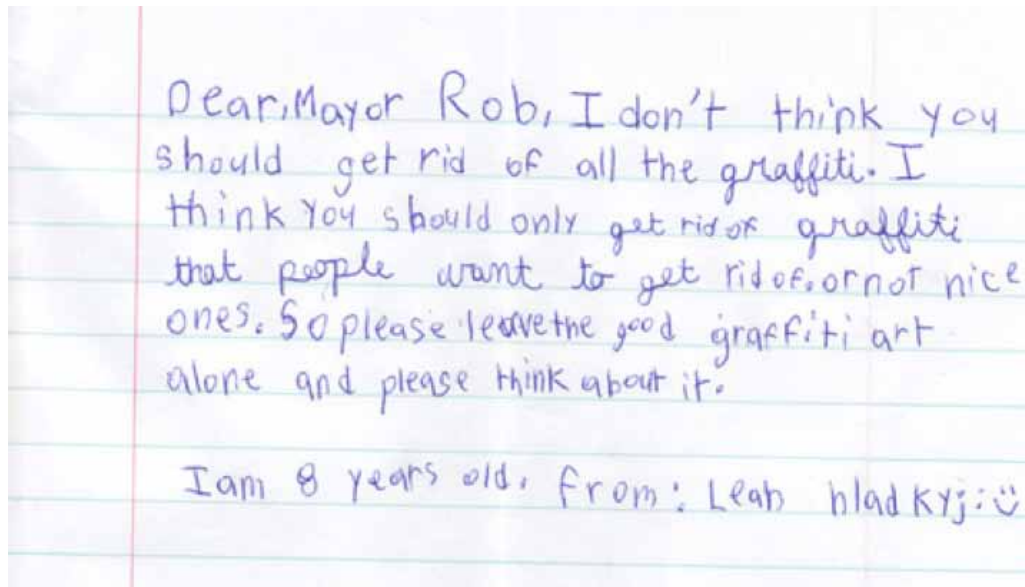 Dear, Mayor Rob, I don't think you
should get rid of all the graffiti. I
think you should only get rid of graffiti
that people want to get rid of. or not nice
ones. So please leave the good graffiti art
alone and please think about it.
I am 8 years old. from: Leah hladkyj :)